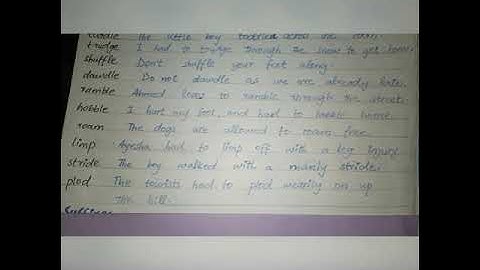 toddle The little boy toddled across the room.
trudge I had to trudge through the snow to get home.
shuffle Don't shuffle your feet along.
dawdle Do not dawdle as we are already late.
ramble Ahmed likes to ramble through the street.
hobble I hurt my foot, and had to hobble home.
roam The dogs are allowed to roam free.
limp Ayesha had to limp off with a leg injury
stride The boy walked with a manly stride.
plod The tourists had to plod wearily on up
the hill.
Suffixes